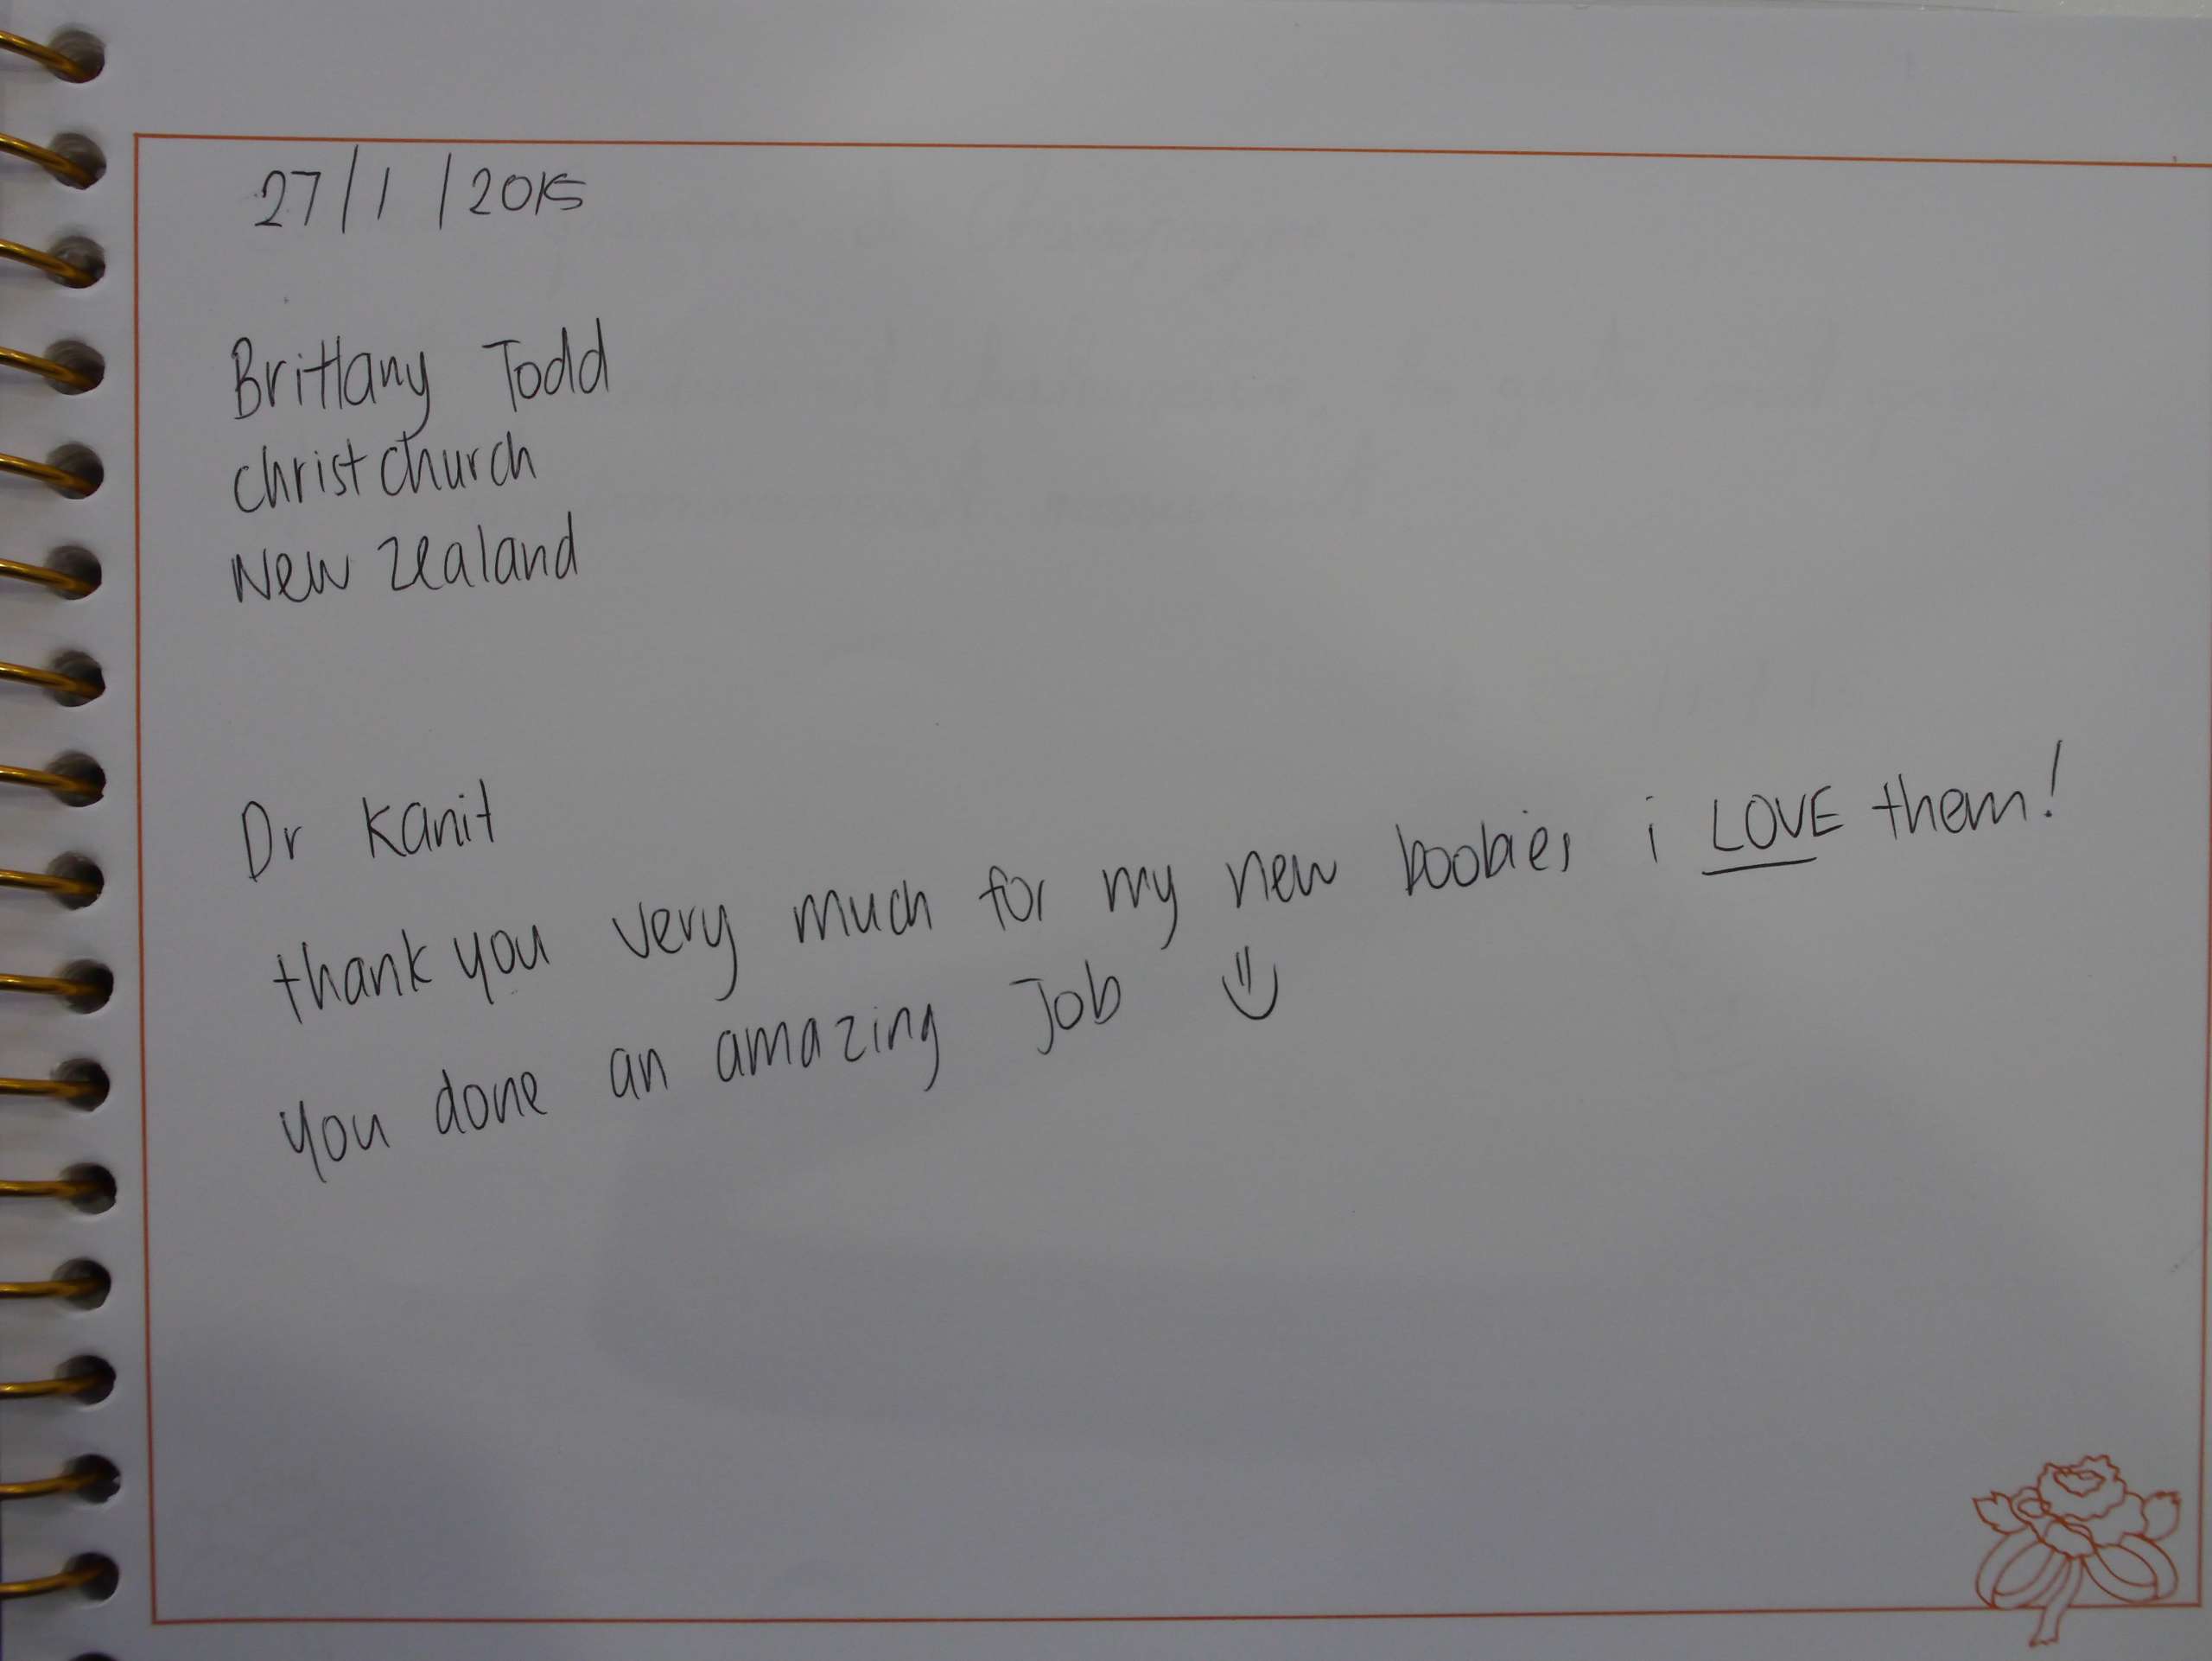 27/1/2015
Brittany Todd
christchurch
New zealand
Dr Kanit
thank you very much for my new boobies i LOVE them!
you done an amazing Job